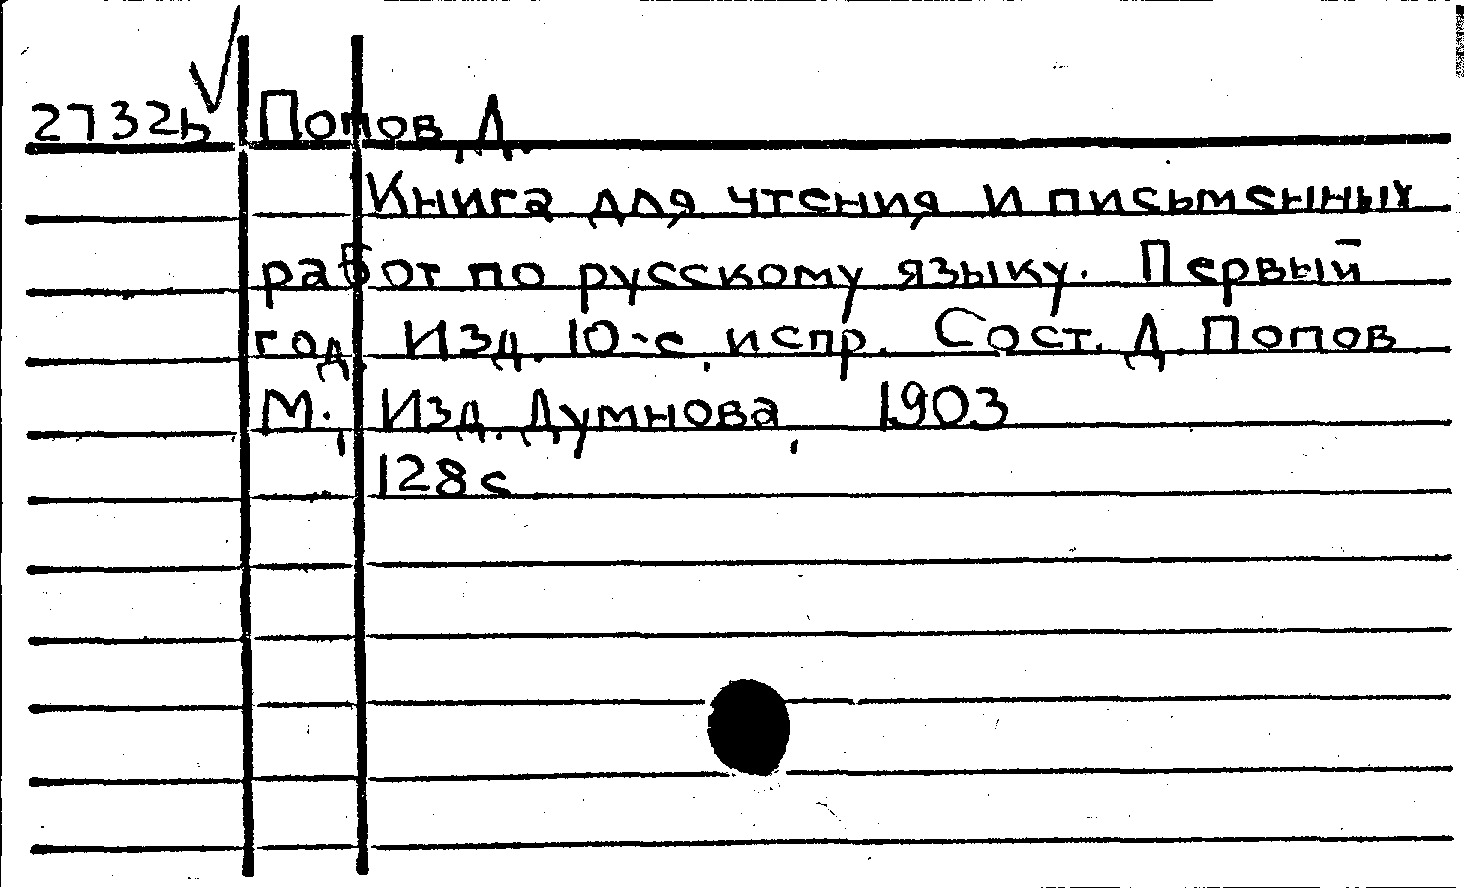 2732ь Попов Д.
Книга для чтения и письменных
работ по русскому языку. Первый
год. Изд. 10-е, испр. Сост. Д. Попов
М., Изд. Думнова, 1903
128 с